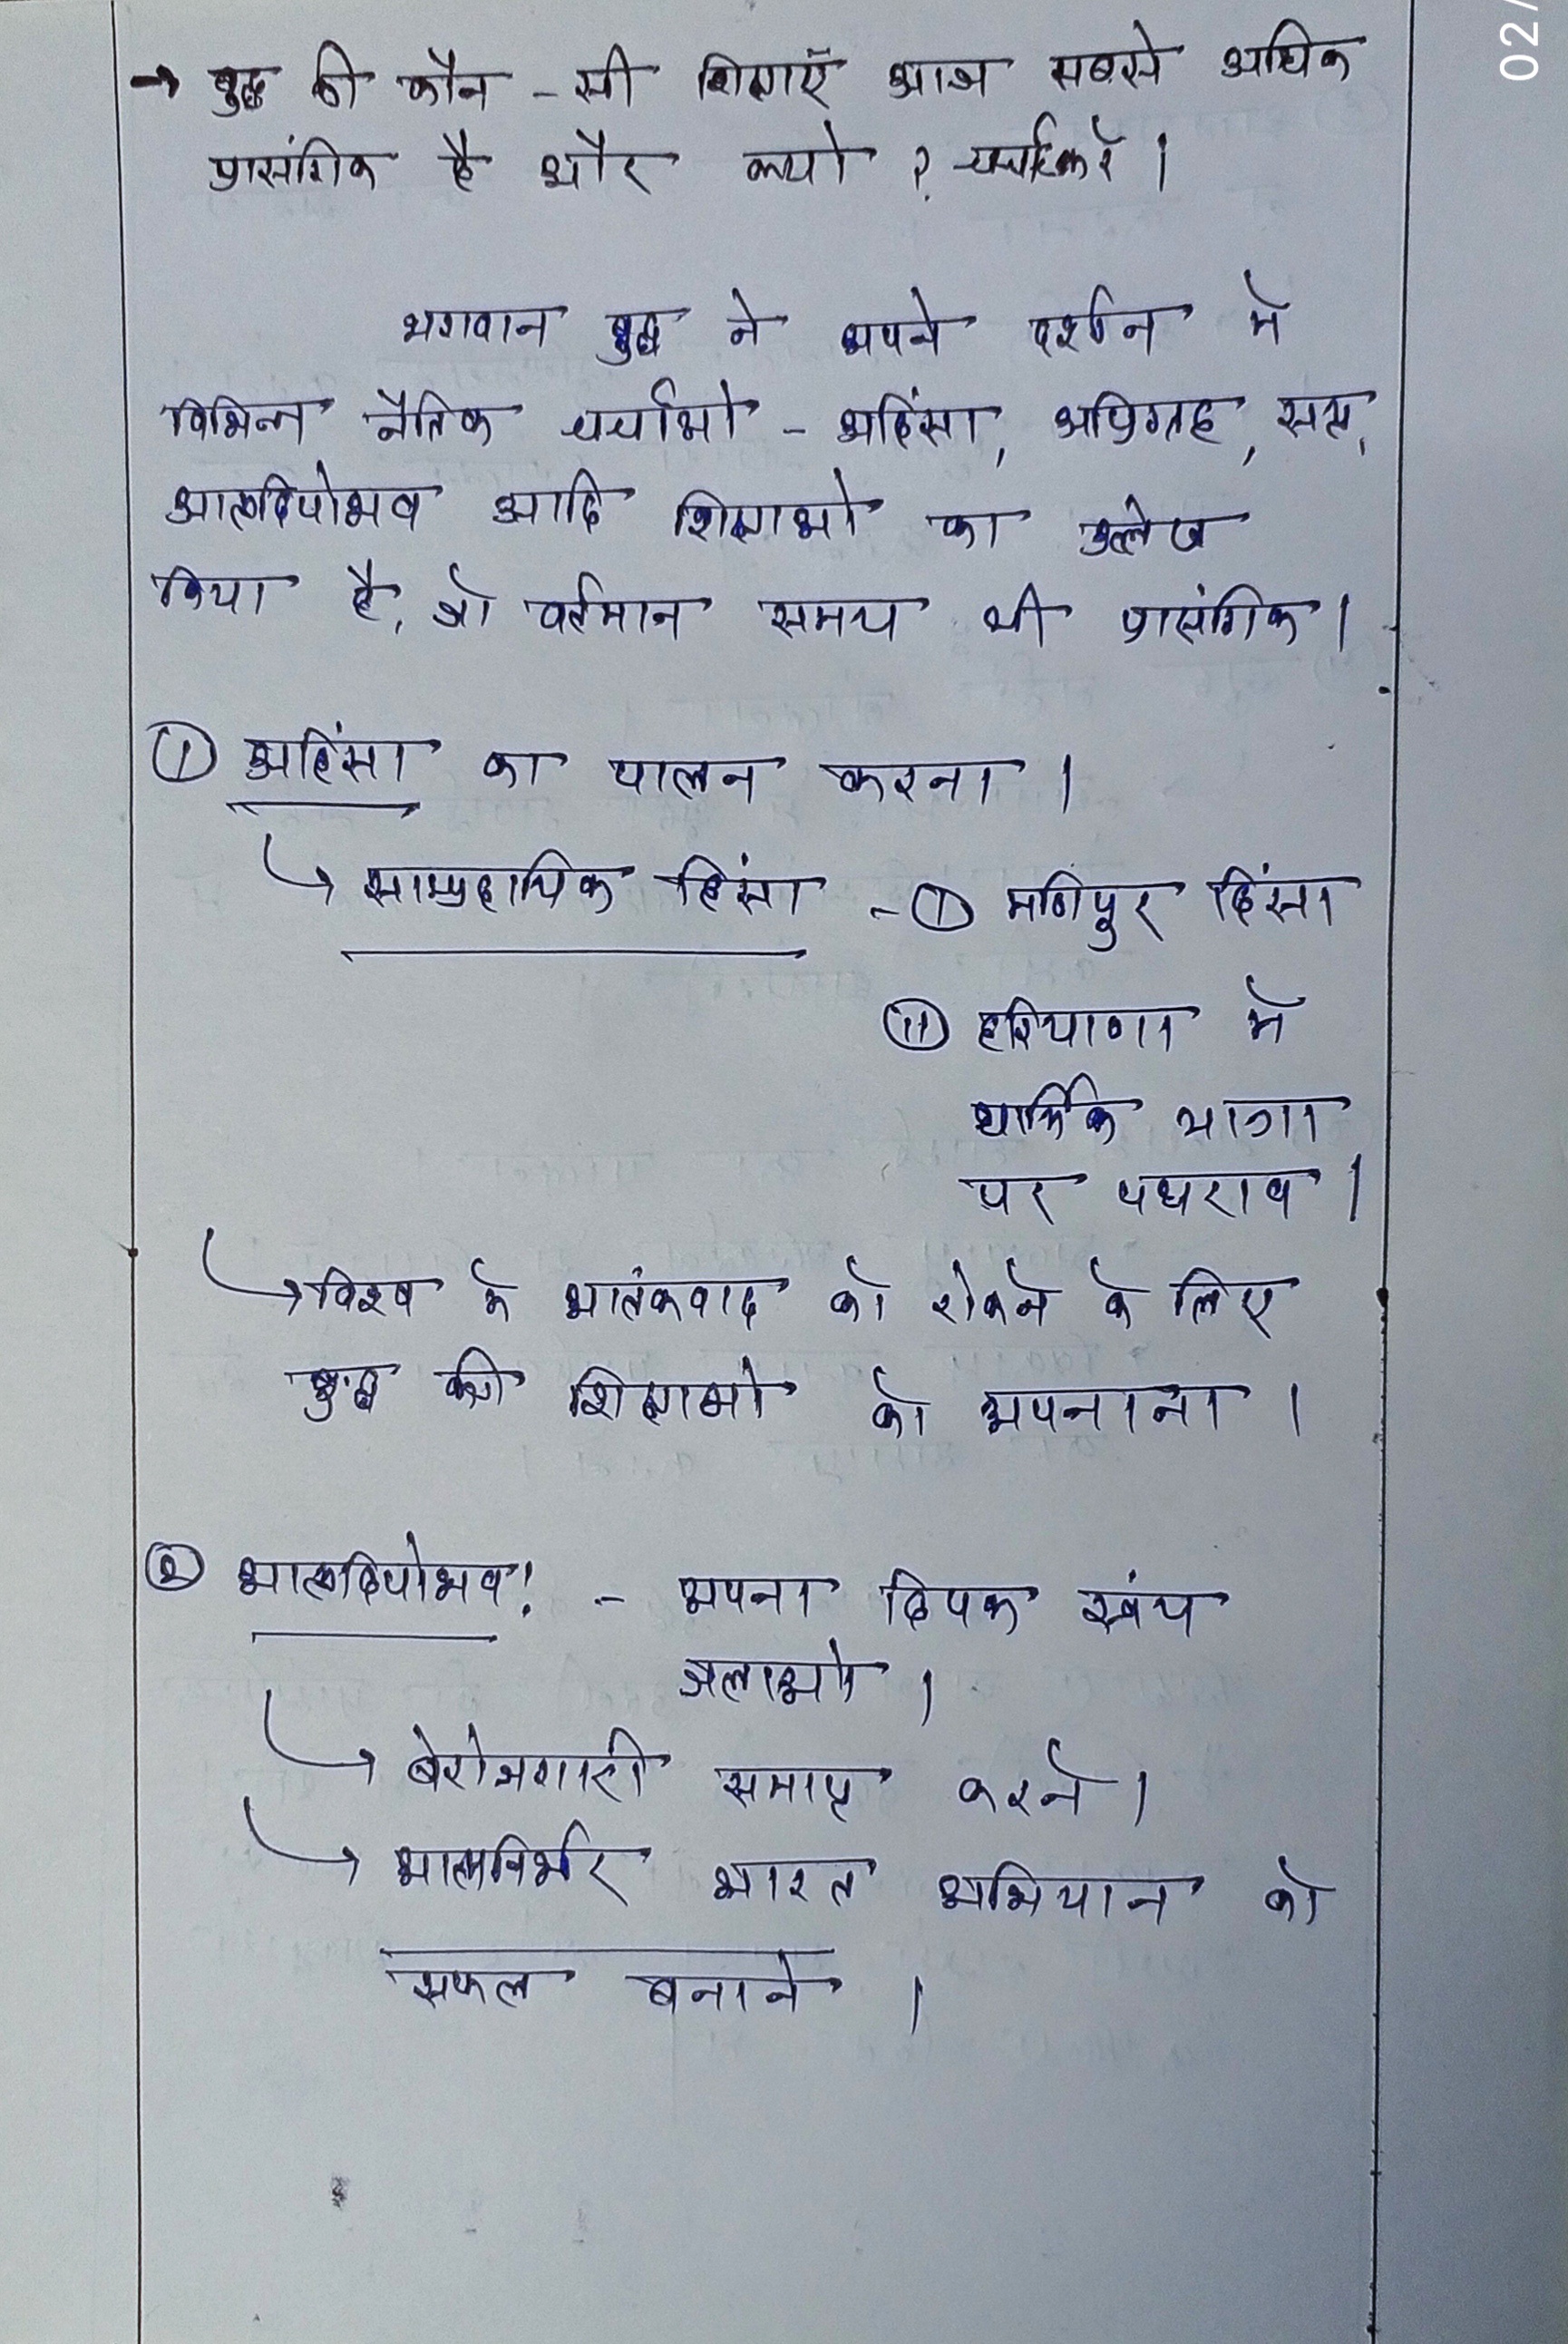 02/
→ बुद्ध की कौन - सी शिक्षाएँ आज सबसे अधिक
प्रासंगिक है और क्यो ? चर्चा करें ।
भगवान बुद्ध ने अपने दर्शन मे
विभिन्न नैतिक चर्चाओ - अहिंसा, अपिग्रह, सत्य,
आत्मदिपोभव आदि शिक्षाओ का उल्लेख
किया है, जो वर्तमान समय भी प्रासंगिक ।
① अहिंसा का पालन करना ।
↳ साम्प्रदायिक हिंसा - ① मणिपुर हिंसा
⑪ हरियाणा मे
धार्मिक यात्रा
पर पथराव ।
↳ विश्व के आतंकवाद को रोकने के लिए
बुद्ध की शिक्षाओ को अपनाना ।
② आत्मदिपोभव! - अपना दिपक स्वंय
जलाओ ।
↳ बेरोजगारी समाप्त करने ।
↳ आत्मनिर्भर भारत अभियान को
सफल बनाने ।